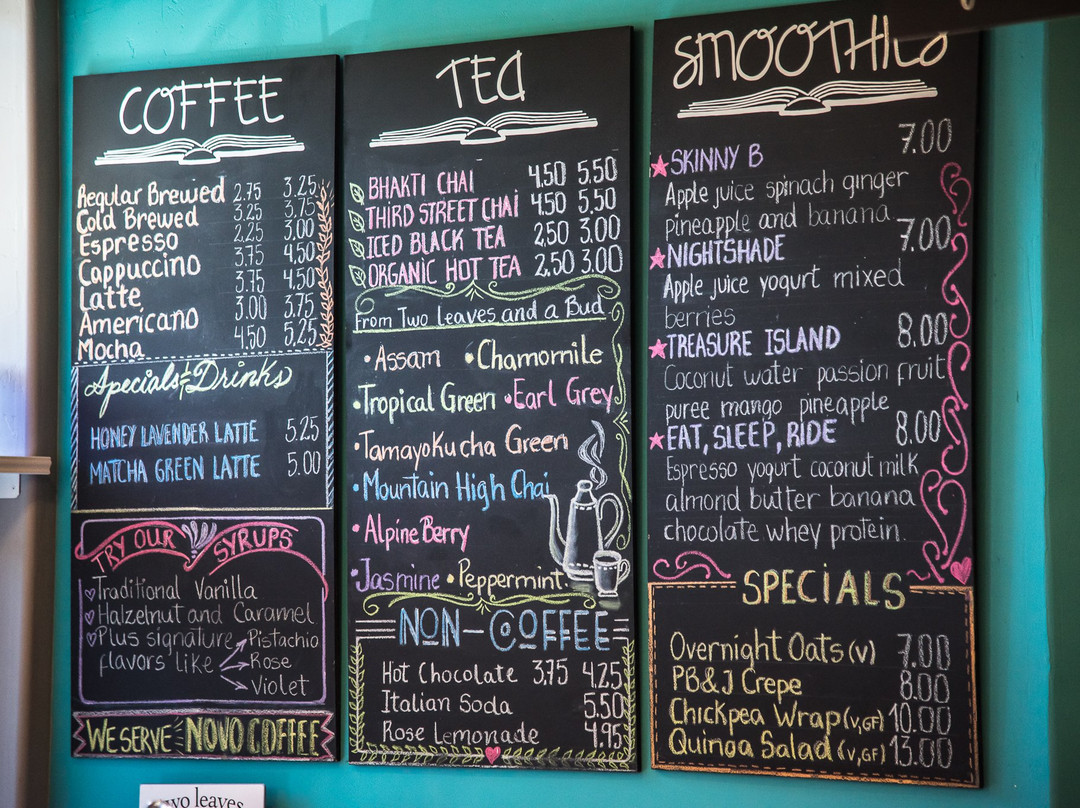 COFFEE
Regular Brewed 2.75 3.25
Cold Brewed 3.25 3.75
Espresso 2.25 3.00
Cappuccino 3.75 4.50
Latte 3.75 4.50
Americano 3.00 3.75
Mocha 4.50 5.25
Specials & Drinks
HONEY LAVENDER LATTE 5.25
MATCHA GREEN LATTE 5.00
TRY OUR SYRUPS
Traditional Vanilla
Halzelnut and Caramel
Plus signature Pistachio
flavors like Rose
Violet
WE SERVE NOVO COFFEE
TEA
BHAKTI CHAI 4.50 5.50
THIRD STREET CHAI 4.50 5.50
ICED BLACK TEA 2.50 3.00
ORGANIC HOT TEA 2.50 3.00
From Two leaves and a Bud
•Assam •Chamomile
•Tropical Green •Earl Grey
•Tamayokucha Green
•Mountain High Chai
•Alpine Berry
•Jasmine •Peppermint
NON-COFFEE
Hot Chocolate 3.75 4.25
Italian Soda 5.50
Rose Lemonade 4.95
SMOOTHIES
SKINNY B 7.00
Apple juice spinach ginger
pineapple and banana
NIGHTSHADE 7.00
Apple juice yogurt mixed
berries
TREASURE ISLAND 8.00
Coconut water passion fruit
puree mango pineapple
EAT, SLEEP, RIDE 8.00
Espresso yogurt coconut milk
almond butter banana
chocolate whey protein.
SPECIALS
Overnight Oats (V) 7.00
PB&J Crepe 8.00
Chickpea Wrap (V,GF) 10.00
Quinoa Salad (V,GF) 13.00
two leaves